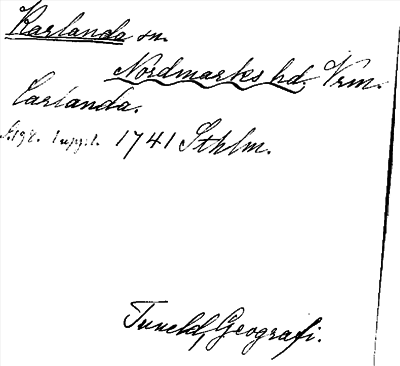 Karlanda sn.
Nordmarks hd. Vrm.
Carlanda.
s. 198. 1 uppl. 1741 Sthlm.
Tuneld, Geografi.